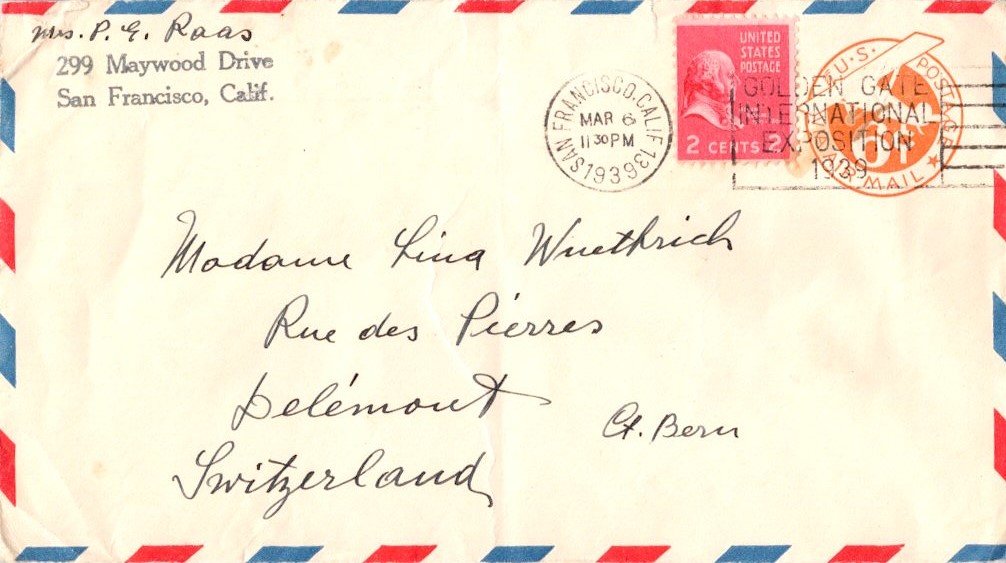 Mrs. P. G. Raas
299 Maywood Drive
San Francisco, Calif.
SAN FRANCISCO, CALIF. 13
MAR 6
11 30 PM
1939
UNITED
STATES
POSTAGE
2 CENTS 2
U.S. POSTAGE
6¢
AIR MAIL
GOLDEN GATE
INTERNATIONAL
EXPOSITION
1939
Madame Lina Wuethrich
Rue des Pierres
Delémont
Ct. Bern
Switzerland